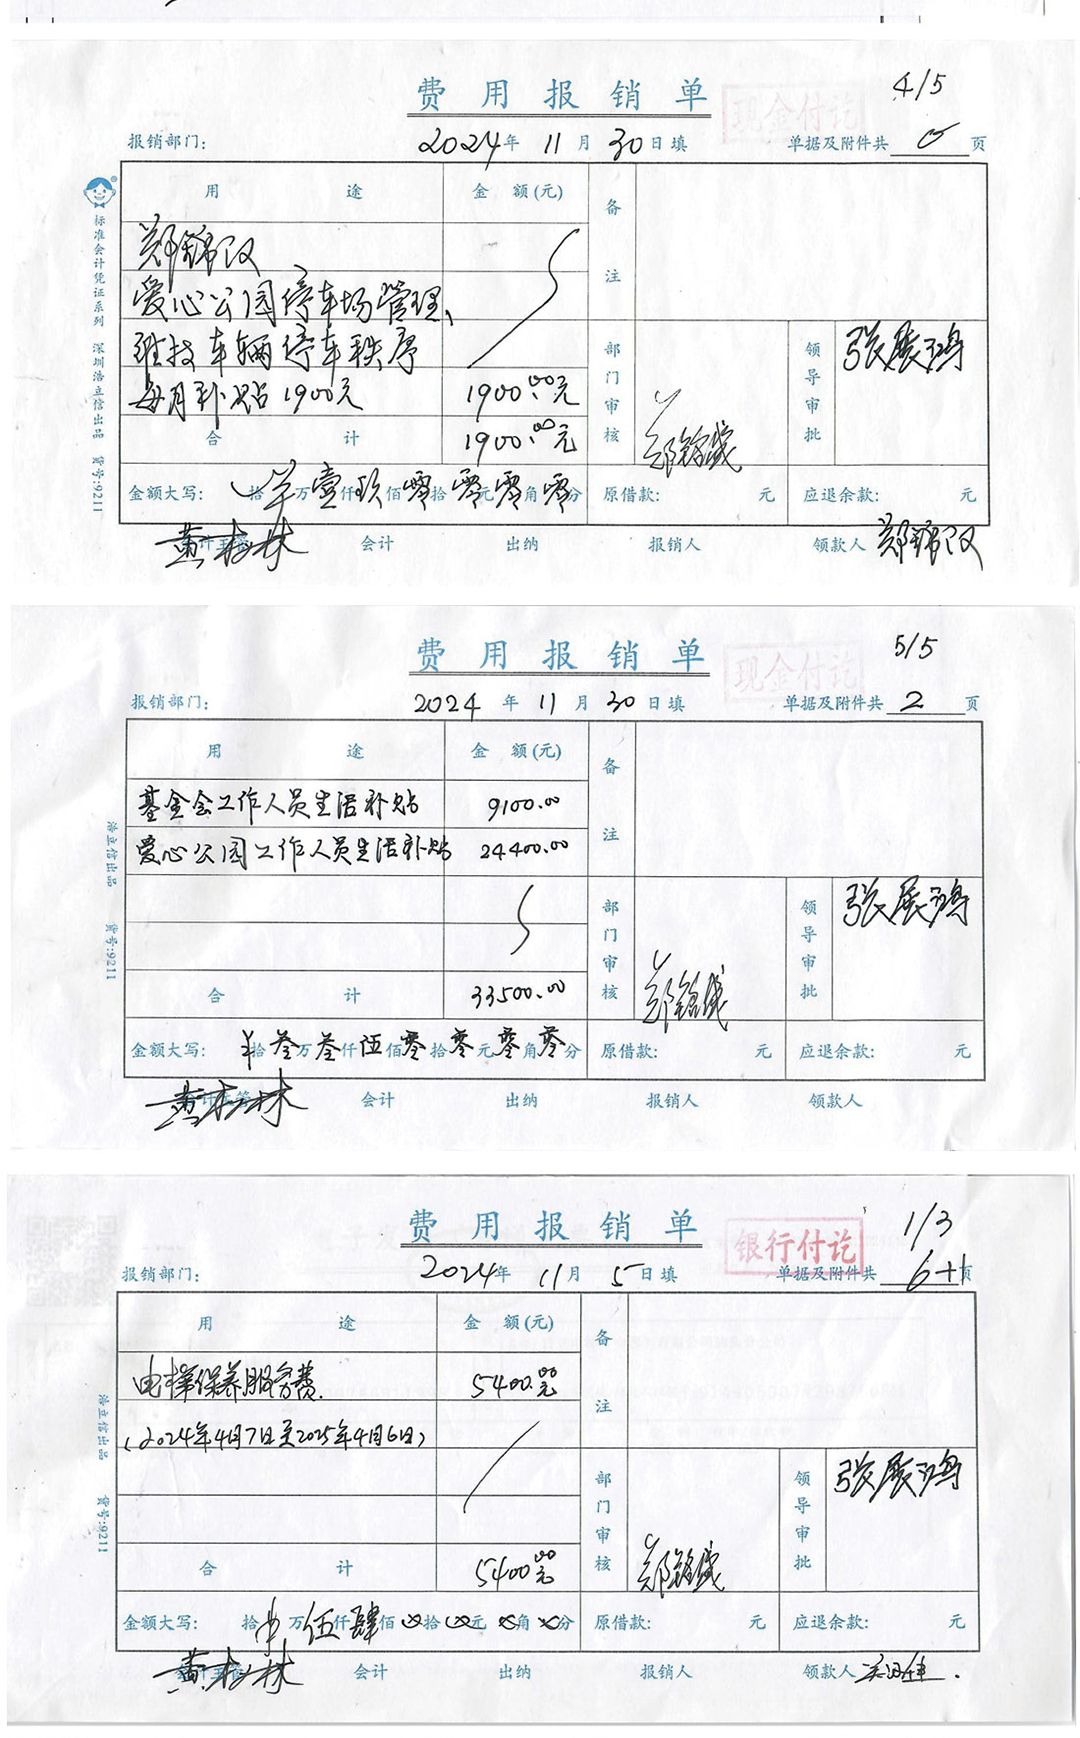 费用报销单
现金付讫
4/5
报销部门：
2024年 11月 30日填
单据及附件共 0 页
用途
金额(元)
备注
郑锦汉
爱心公园停车场管理、
维持车辆停车秩序
每月补贴1900元
1900.00元
合计
1900.00元
部门审核
领导审批
张展鸿
金额大写： 拾 万壹仟玖佰零拾零元零角零分
原借款： 元
应退余款： 元
会计主管
会计
出纳
报销人
领款人 郑锦汉
标准会计凭证系列 深圳浩立信出品 货号:9211
费用报销单
现金付讫
5/5
报销部门：
2024年 11月 30日填
单据及附件共 2 页
用途
金额(元)
备注
基金会工作人员生活补贴
9100.00
爱心公园工作人员生活补贴
24400.00
合计
33500.00
部门审核
领导审批
张展鸿
金额大写： 拾叁万叁仟伍佰零拾零元零角零分
原借款： 元
应退余款： 元
会计主管
会计
出纳
报销人
领款人
浩立信出品 货号:9211
费用报销单
银行付讫
1/3
报销部门：
2024年 11月 5日填
单据及附件共 6+1 页
用途
金额(元)
备注
电梯保养服务费
5400.00元
(2024年4月7日至2025年4月6日)
合计
5400.00元
部门审核
领导审批
张展鸿
金额大写： 拾 万伍仟肆佰 拾 元 角 分
原借款： 元
应退余款： 元
会计主管
会计
出纳
报销人
领款人
浩立信出品 货号:9211